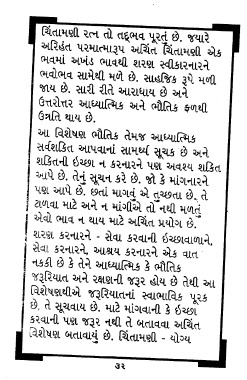 ચિંતામણી રત્ન તો તદ્દભવ પૂરતું છે. જયારે
અરિહંત પરમાત્મારૂપ અચિંત ચિંતામણી એક
ભવમાં અખંડ ભાવથી શરણ સ્વીકારનારને
ભવોભવ સામેથી મળે છે. સાહજિક રૂપે મળી
જાય છે. સારી રીતે આરાધાય છે અને
ઉત્તરોત્તર આધ્યાત્મિક અને ભૌતિક ફળથી
ઉન્નતિ થાય છે.
આ વિશેષણ ભૌતિક તેમજ આધ્યાત્મિક
સર્વશકિત આપવાનાં સામર્થ્ય સૂચક છે અને
શકિતની ઇચ્છા ન કરનારને પણ અવશ્ય શકિત
આપે છે. તેનું સૂચન કરે છે. જો કે માંગનારને
પણ આપે છે. છતાં માગવું એ તુચ્છતા છે. તે
ટાળવા માટે અને ન માંગીએ તો નથી મળતું
એવો ભાવ ન થાય માટે અચિંત પ્રયોગ છે.
શરણ કરનારને - સેવા કરવાની ઇચ્છાવાળાને,
સેવા કરનારને, આશ્રય કરનારને એક વાત
નકકી છે કે તેને આધ્યાત્મિક કે ભૌતિક
જરૂરિયાત અને રક્ષણની જરૂર હોય છે તેથી આ
વિશેષણથીએ જરૂરિયાતનાં સ્વાભાવિક પૂરક
છે, તે સૂચવાય છે. માટે માંગવાની કે ઇચ્છા
કરવાની પણ જરૂર નથી તે બતાવવા અચિંત
વિશેષણ બતાવાયું છે. ચિંતામણી - યોગ્ય
૭૨